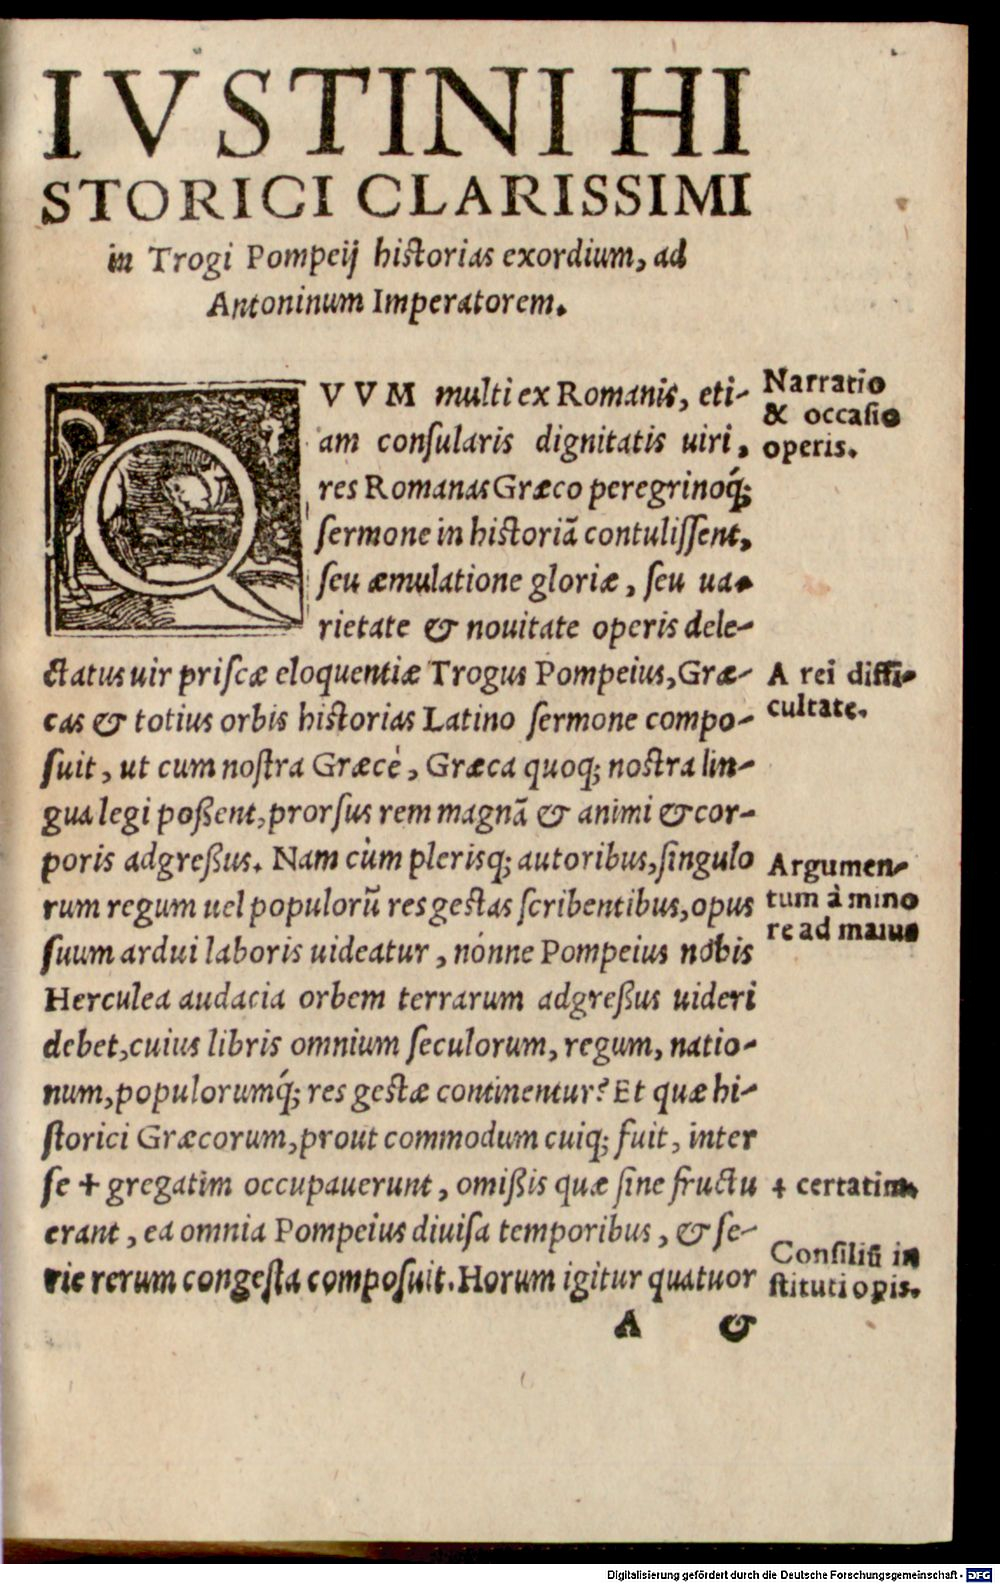 IVSTINI HI
STORICI CLARISSIMI
in Trogi Pompeij historias exordium, ad
Antoninum Imperatorem.
QVVM multi ex Romanis, eti-
am conſularis dignitatis uiri,
res Romanas Græco peregrinoq́;
ſermone in historiã contuliſſent,
ſeu æmulatione gloriæ, ſeu ua-
rietate & nouitate operis dele-
ctatus uir priſcæ eloquentiæ Trogus Pompeius, Græ-
cas & totius orbis historias Latino ſermone compo-
ſuit, ut cum noſtra Græcè, Græca quoq; nostra lin-
gua legi poßent, prorſus rem magnã & animi & cor-
poris adgreßus. Nam cùm plerisq; autoribus, ſingulo
rum regum uel populorũ res gestas ſcribentibus, opus
ſuum ardui laboris uideatur, nónne Pompeius nobis
Herculea audacia orbem terrarum adgreßus uideri
debet, cuius libris omnium ſeculorum, regum, natio-
num, populorumq́; res gestæ continentur? Et quæ hi-
ſtorici Græcorum, prout commodum cuiq; fuit, inter
ſe + gregatim occupauerunt, omißis quæ ſine fructu
erant, ea omnia Pompeius diuiſa temporibus, & ſe-
rie rerum congeſta compoſuit. Horum igitur quatuor
A &
Narratio
& occaſio
operis.
A rei diffi-
cultate.
Argumen-
tum à mino
re ad maius
+ certatim
Conſiliũ in
ſtituti opis.
Digitalisierung gefördert durch die Deutsche Forschungsgemeinschaft - DFG